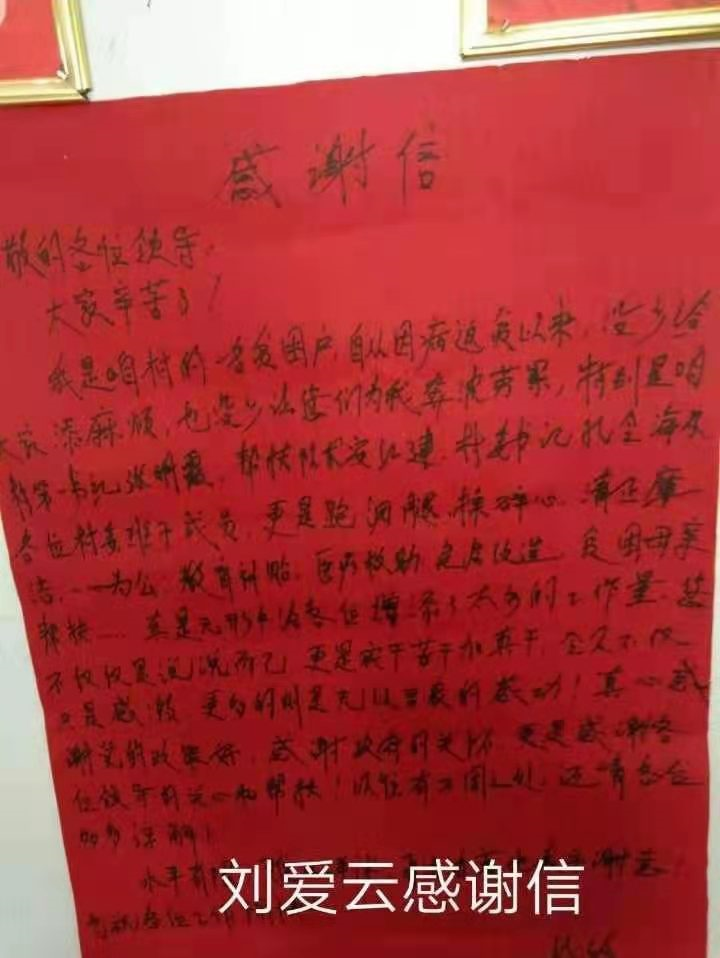 感谢信
敬的各位领导:
大家辛苦了!
我是咱村的一名贫困户,自从因病返贫以来,没少给
大家添麻烦,也没少让您们为我奔波劳累,特别是咱
村第一书记张明霞,帮扶队长安红建,村委书记孔全海及
各位村委班子成员,更是跑细腿、操碎心、清正廉
洁,一一为公,教育补贴,医疗救助,危房改造,贫困母亲
帮扶……真是无形中给各位增添了太多的工作量,您
不仅仅是说说而已,更是实干苦干加真干,全
是感激,更多的则是无以言表的感动!真心感
谢党的政策好,感谢政府的关怀,更是感谢各
位领导的关心和帮扶!以往有不周之处,还请各位
多多谅解!
水平有
刘爱云感谢信
祝各位工作